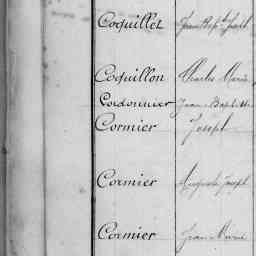 Coquillet Jean Bap.te Joseph
Coquillon Charles Marie
Cordonnier Jean Baptiste
Cormier Joseph
Cormier Auguste Joseph
Cormier Jean Marie